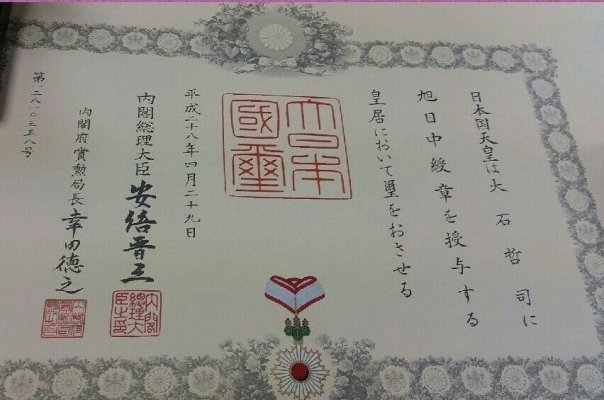 日本国天皇は大石哲司に
旭日中綬章を授与する
皇居において璽をおさせる
大日本國璽
平成二十八年四月二十九日
内閣総理大臣 安倍晋三
内閣総理大臣之印
内閣府賞勲局長 幸田徳之